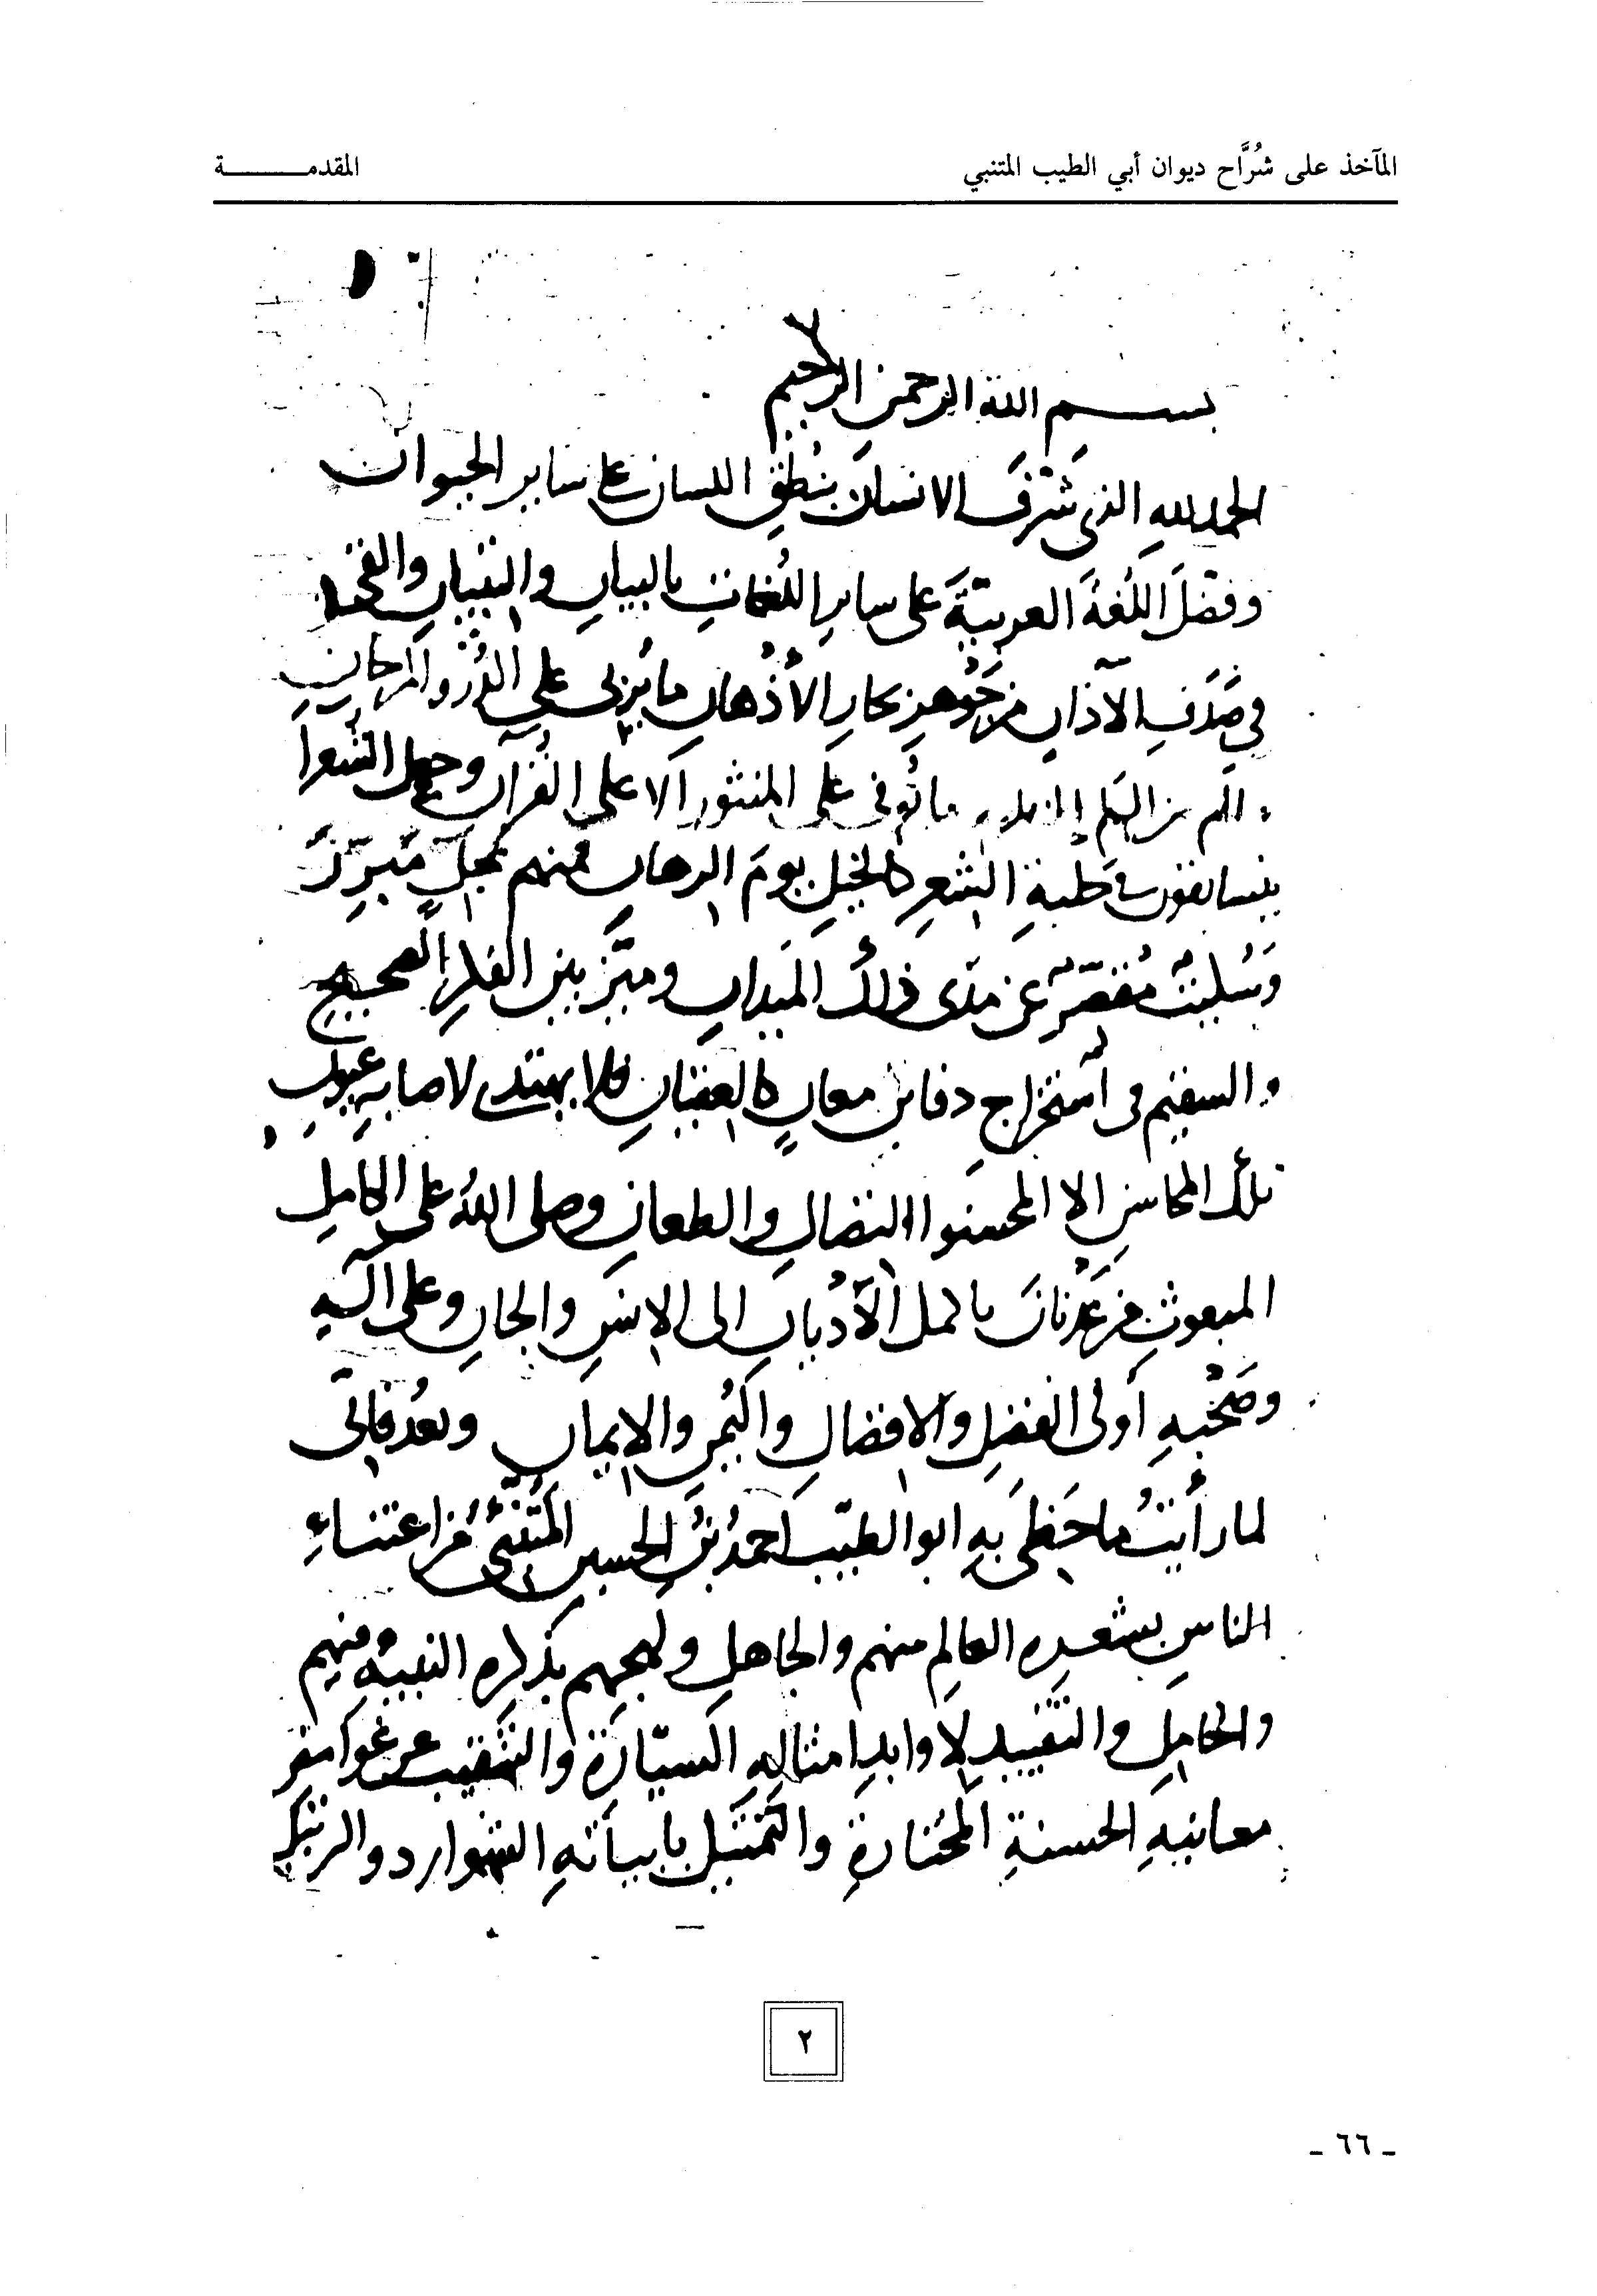 المآخذ على شُرَّاح ديوان أبي الطيب المتنبي المقدمـــــــــة
بسم الله الرحمن الرحيم
الحمد لله الذي شَرَّفَ الانسانَ بنُطْقِ اللسان على ساير الحيوان
وفضّلَ اللُغةَ العربيّةَ على سايرِ اللُغاتِ بالبيانِ والتبيانِ
في صَدَفِ الآذانِ من جَوْهرِ بحارِ الأذْهانِ ما يُزرى على الدُرّ والمَرجانِ
ما تُوفى على المنثورِ الا على القُرآنِ وجعل الشُعرا
يتسابقون في حلبةِ الشعرِ كالخيلِ يومَ الرهانِ فمنهم مُجَلٍّ مُبَرِّزٌ
وسُكيتٌ مُقصّرٌ عن مَدَى ذلك المَيدانِ وميّز بين الفكرِ الصحيح
والسقيم في استخراجِ دفاين معانٍ كالعِقيانِ فلا يهتدى لاصابةِ عيونِ
تلك المحاسنِ الا المحسنوا النضالِ والطعانِ وصلى اللهُ على الكاملِ
المبعوثِ من عَدْنانَ باكمل الأَدْيانِ الى الانسِ والجانِ وعلى آلـهِ
وصَحْبهِ أولى الفضلِ والافضالِ واليُمنِ والايمانِ وبعدُ فانى
لما رأيتُ ما حَظِىَ بهِ ابو الطيّب احمدُ بنُ الحسينِ المُتَنَبّىُ من اعتناءِ
الناسِ بشعرِه العالِم منهم والجاهلِ ولهجهم بذكره النبيهِ منهم
والخاملِ والتقييدِ لِاوابدِ امثالِهِ السيّارَةِ والتنقيب عن غوامض
معانيهِ الحسنةِ المختارةِ والتمثيل بابياتهِ الشوارد
٢
ـ ٦٦ ـ